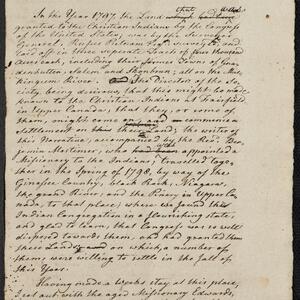 In the Year 1787 the Land which had been
granted to the Christian Indians by the Congress
of the United States, was by the Surveyor
General, Rufus Putnam Esqr. surveyed, and
laid off in three separate Tracts of four thousand
Acres each, including their former Towns of Gna-
denhutten, Salem and Shonbrun; all on the Mus-
kingum River. And the Directors of the So-
ciety being desirous, that this might be made
known to the Christian-Indians at Fairfield
in Upper Canada; that they, or some of
them, might come and commence a
settlement on this their Land; the writer of
this Narrative, accompanied by the Revd. Ben-
jamin Mortimer, who was appointed a
Missionary to the Indians, travelled toge-
ther in the Spring of 1798, by way of the
Genesee Country, black Rock, Niagara,
the grand River, and the Pinery in Upper Ca-
nada, to that place; where we found the
Indian Congregation in a flourishing state,
and glad to learn, that Congress was so well
disposed towards them, and had granted them
these Lands, on which, a number of
them were willing to settle in the fall of
this Year.
Having made a Weeks stay at this place,
I set out with the aged Missionary Edwards,